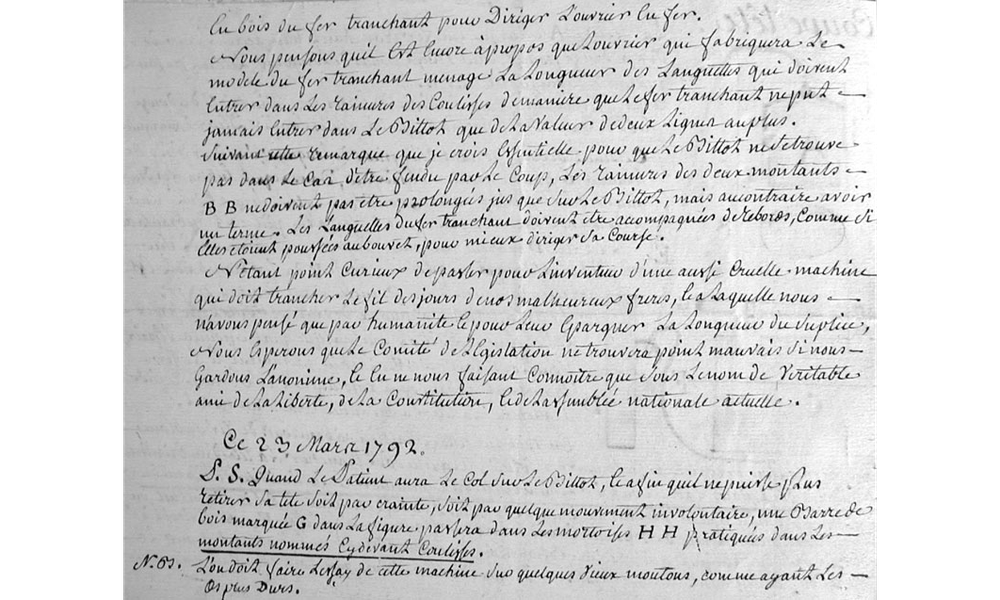 En bois du fer tranchant pour Diriger L'ouvrier En fer.
Nous pensons quil Est Encore à propos que Louvrier qui fabriquera Le
modele du fer tranchant menage La Longueur des Languettes qui doivent
Entrer dans Les rainures des Coulisses demaniere que Le fer tranchant ne puit
jamais Entrer dans Le Billot que de La Valeur de deux Lignes au plus.
Suivant cette remarque que je crois Essentielle pour que Le Billot ne se trouve
pas dans Le Cas d'être fendu par Le Coup, Les rainures des deux montants
B B ne doivent pas être prolongées jus que sur Le Billot, mais aucontraire avoir
un terme. Les Languettes du fer tranchant doivent être accompagnées de Rebords, Comme si
Elles étoient poussées au bouvet, pour mieux diriger Sa Course.
N'etant point Curieux de passer pour L'inventeur d'une aussi Cruelle machine
qui doit trancher Le fil des jours de nos malheureux freres, Et a Laquelle nous
n'avons pensé que par humanité Et pour Leur Epargner La Longueur du Suplice,
Nous Esperons que Le Comité de Législation ne trouvera point mauvais Si nous
Gardons L'anonime, Et En ne nous faisant Connoitre que Sous Le nom de Veritable
ami de La Liberté, de La Constitution, Et de L'assemblée nationale actuelle.
Ce 23 Mars 1792.
P. S. Quand Le Patient aura Le Col Sur Le Billot, Et afin quil ne puisse plus
retirer Sa tête Soit par crainte, Soit par quelque mouvement involontaire, une Barre de
bois marquée G dans La figure passera dans Les mortoises H H pratiquées dans Les
montants nommés Cy devant Coulisses.
L'on doit faire L'essay de cette machine Sur quelques Vieux moutons, comme ayant Les
Os plus Durs.